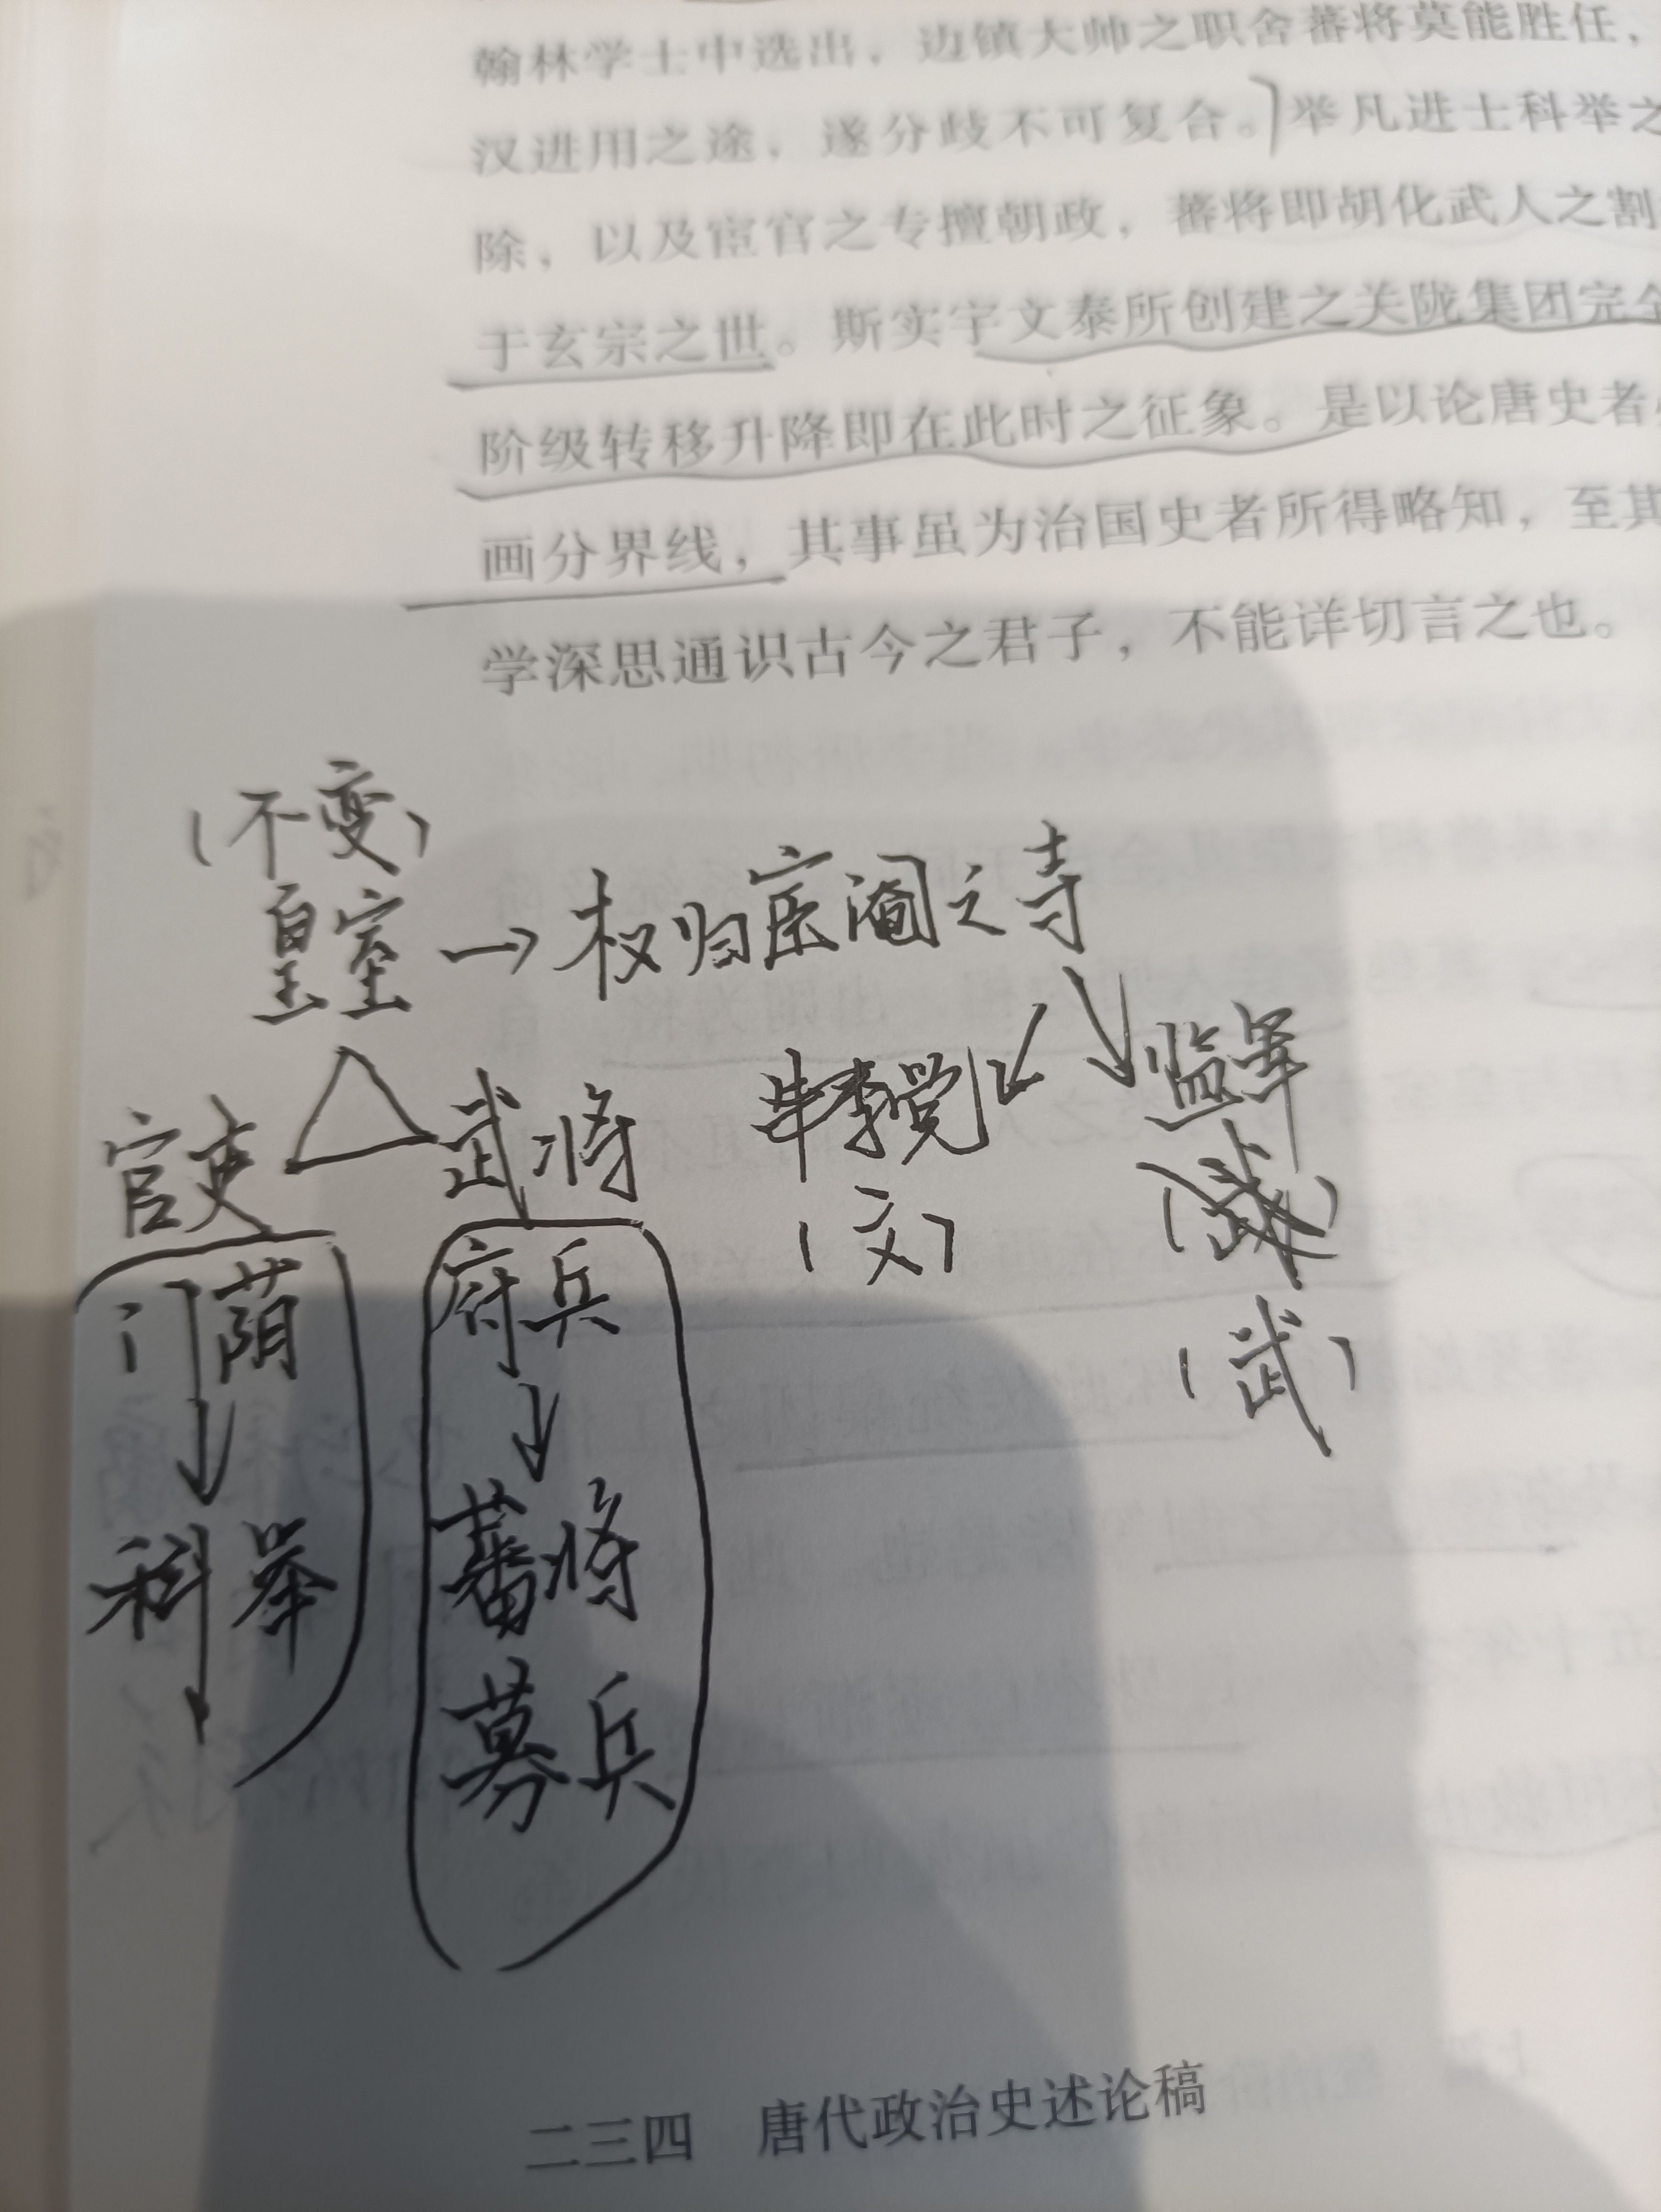 翰林学士中选出，边镇大帅之职舍蕃将莫能胜任，
汉进用之途，遂分歧不可复合。举凡进士科举之
除，以及宦官之专擅朝政，蕃将即胡化武人之割
于玄宗之世。斯实宇文泰所创建之关陇集团完全
阶级转移升降即在此时之征象。是以论唐史者
画分界线，其事虽为治国史者所得略知，至其
学深思通识古今之君子，不能详切言之也。
（不变）
皇室 → 权归宦阉之寺
官吏 武将 牛李党 监军
（文）
（武）
门荫 府兵
↓ ↓
科举 蕃将
募兵
二三四 唐代政治史述论稿